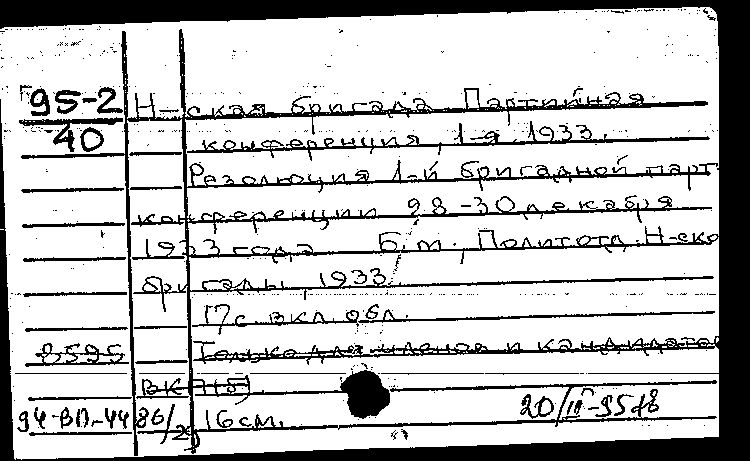 95-2
40
Н-ская бригада. Партийная
конференция, 1-я. 1933.
Резолюция 1-й бригадной парт-
конференции 28-30 декабря
1933 года. Б.м., Политотд. Н-ско
бригады, 1933.
17с. вкл. обл.
8595
Только для членов и кандидатов
ВКП(б)
94-ВП-44 86/
16 см.